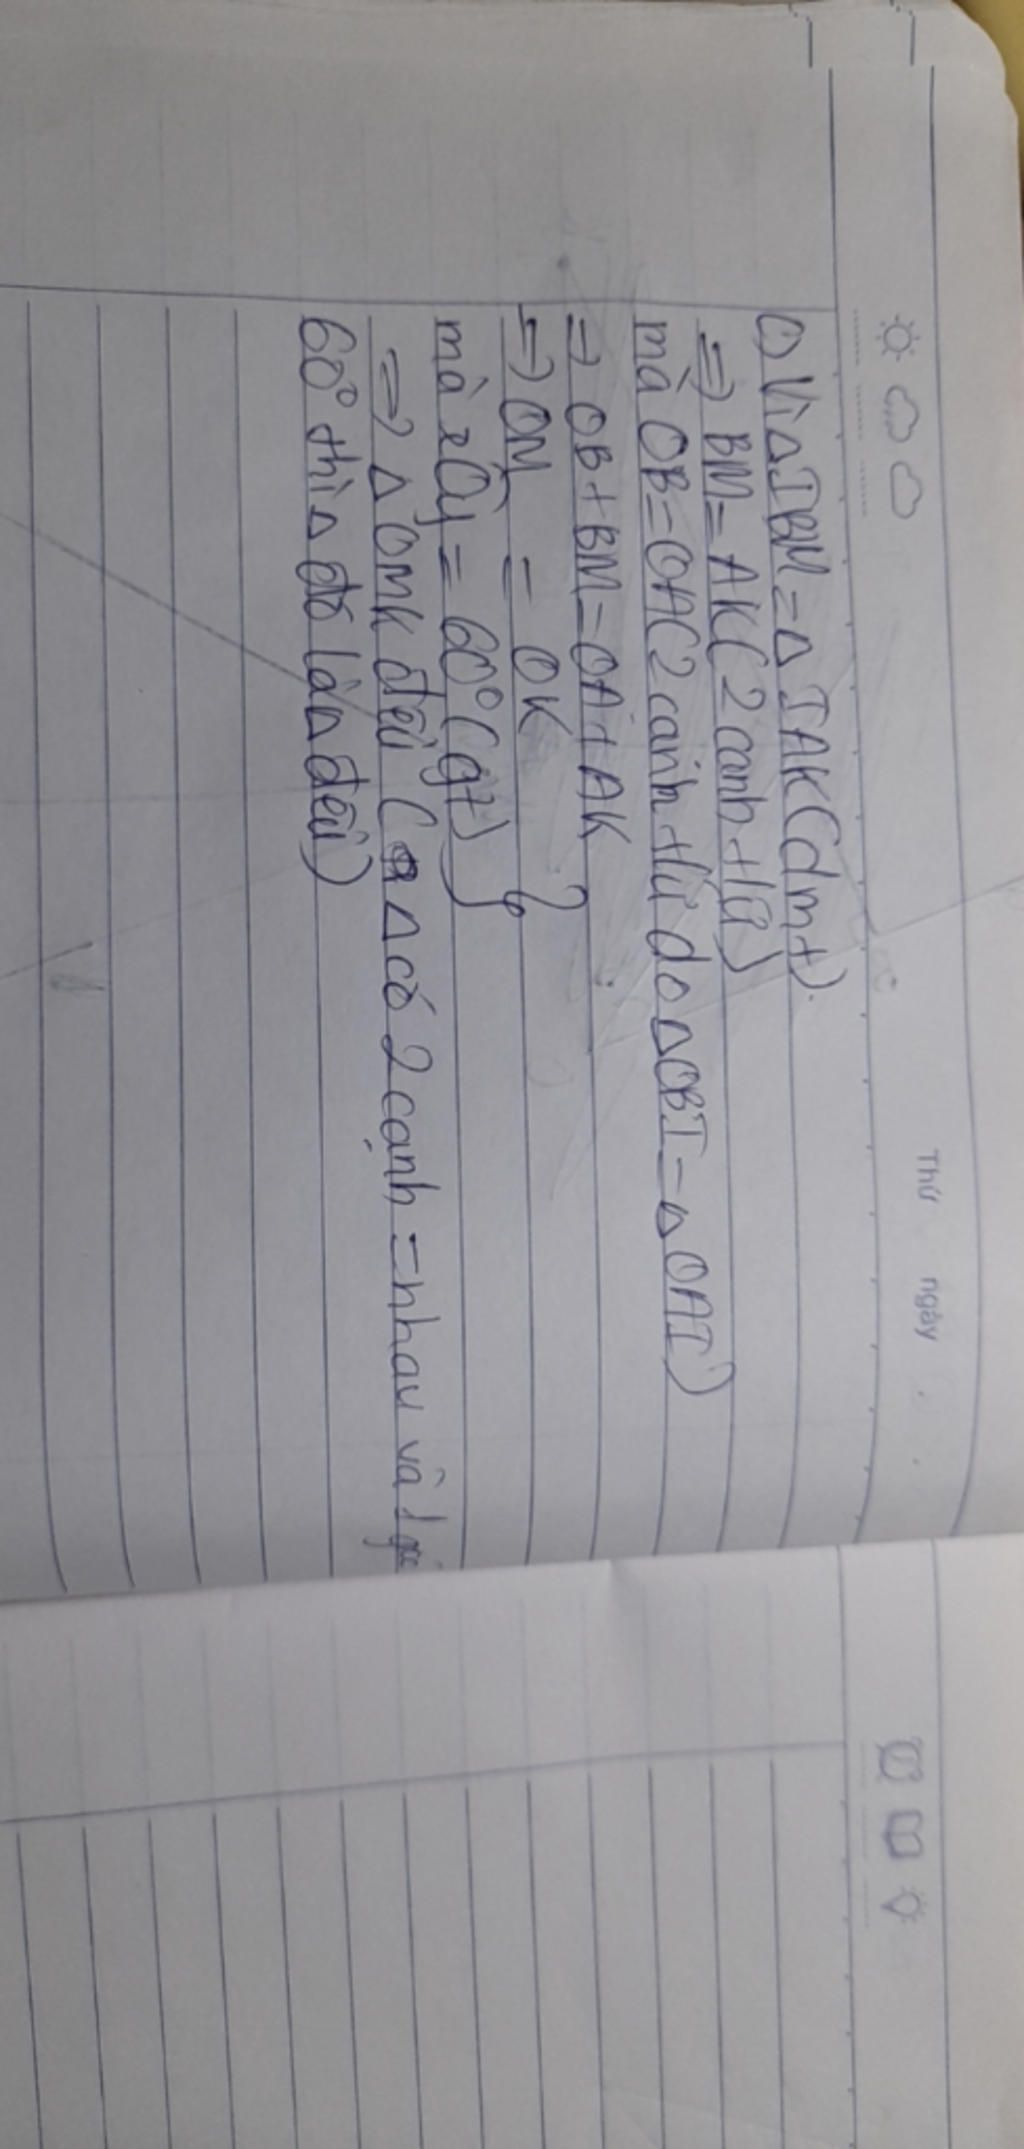 Thứ ngày
c) Vì Δ IBM = Δ IAK (cmt)
=> BM = AK (2 cạnh tứ)
mà OB = OA (2 cạnh tứ do Δ OBI = Δ OAI)
=> OB + BM = OA + AK
=> OM = OK
mà xOy = 60° (gt)
=> Δ OMK đều ( Δ có 2 cạnh = nhau và 1 góc
60° thì Δ đó là Δ đều)